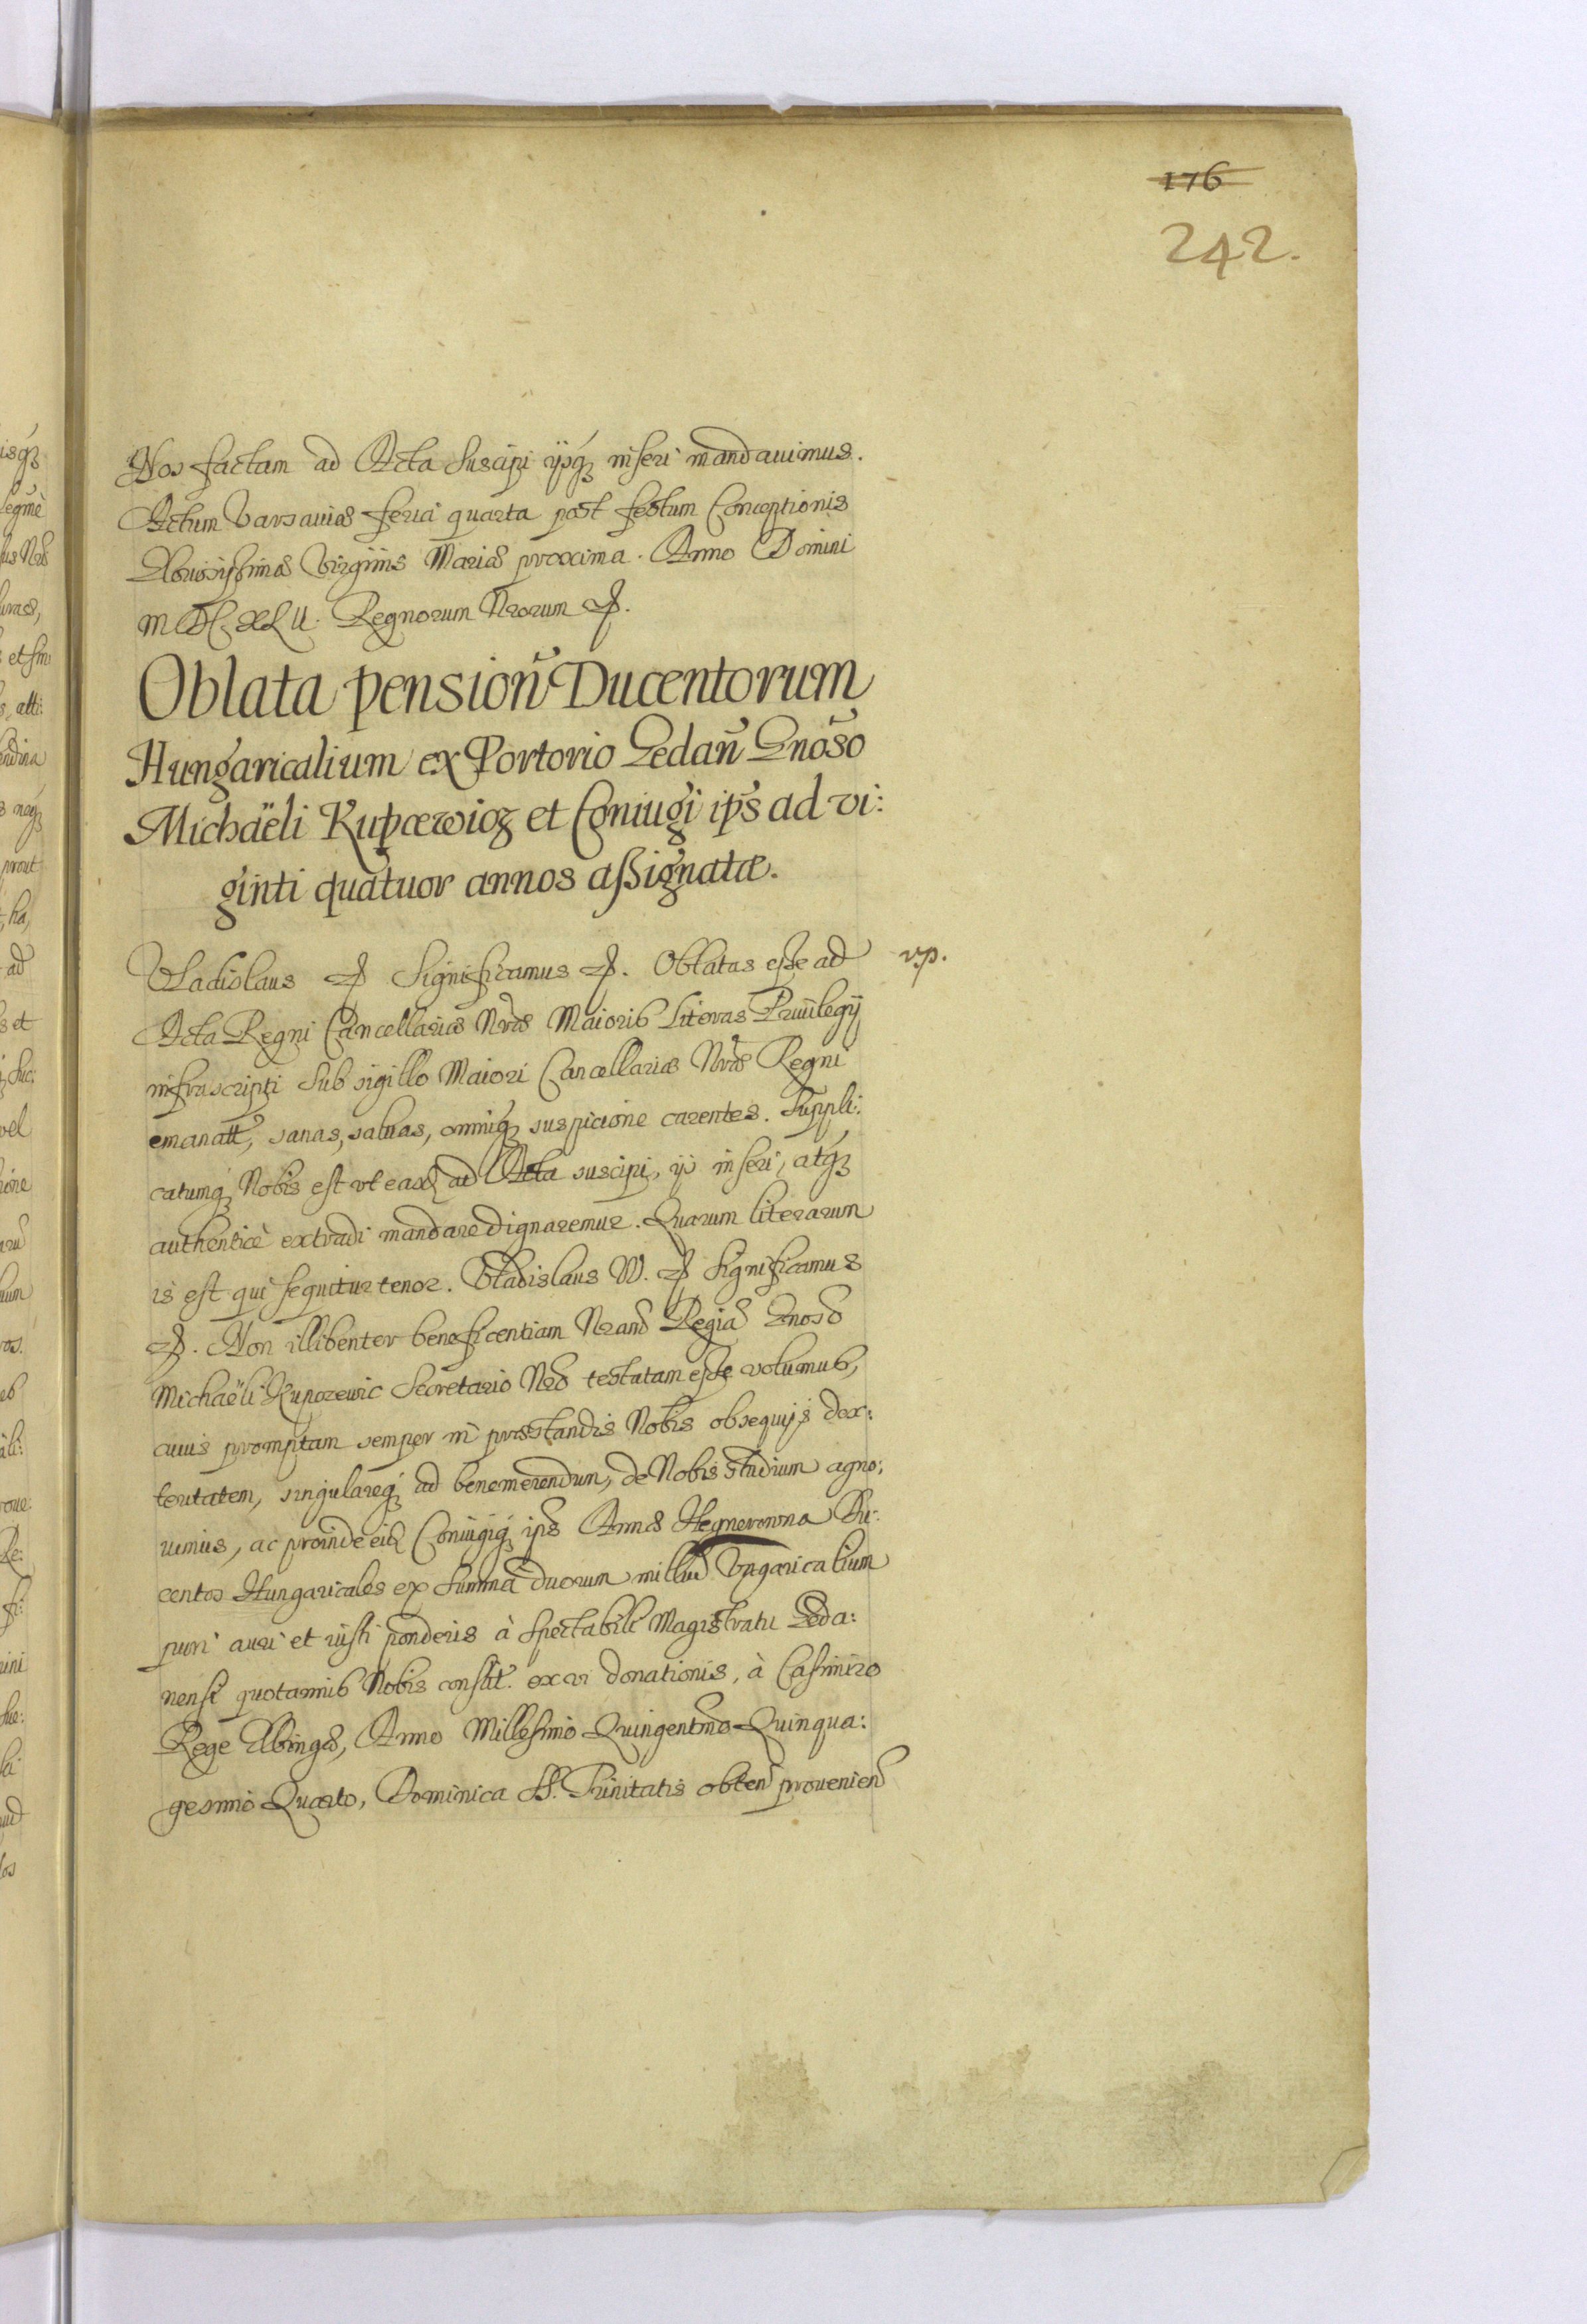 176
242.
Nos factam ad Acta suscipi ijsq; inseri mandauimus.
Actum Varsauiæ feria quarta post festum Conceptionis
Gloriosissimæ Virginis Mariæ proxima. Anno Domini
MDCXLII. Regnorum Nrorum &.
Oblata pension Ducentorum
Hungaricalium ex Portorio Gedan Gnoso
Michaëli Kupcewicz et Coniugi ips ad vi:
ginti quatuor annos assignatæ.
Vladislaus & Significamus &. Oblatas esse ad vp.
Acta Regni Cancellariæ Nræ Maioris Literas Priuilegij
infrascripti sub sigillo Maiori Cancellariæ Nræ Regni
emanatt, sanas, saluas, omniq; suspicione carentes. Suppli:
catumq; Nobis est vt easd ad Acta suscipi, ijs inseri, atq;
authenticè extradi mandare dignaremur. Quarum literarum
is est qui sequitur tenor. Vladislaus IV. & Significamus
&. Non illibenter beneficentiam Nram Regiã Gnoso
Michaëli Kupczewic Secretario Nro testatam esse volumus,
cuius promptam semper in præstandis Nobis obsequijs dex:
teritatem, singulareq; ad benemerendum, de Nobis studium agno:
uimus, ac proinde eid Coniugiq; ips Annæ Hegnerowna Du:
centos Hungaricales ex summa duorum milliu Vngaricalium
puri auri et iusti ponderis à Spectabili Magistratu Geda:
nensi quotannis Nobis constit. ex vi donationis, à Casimiro
Rege Elbingæ, Anno Millesimo Quingentmo Quinqua:
gesimo Quarto, Dominica SS. Trinitatis obten prouenien